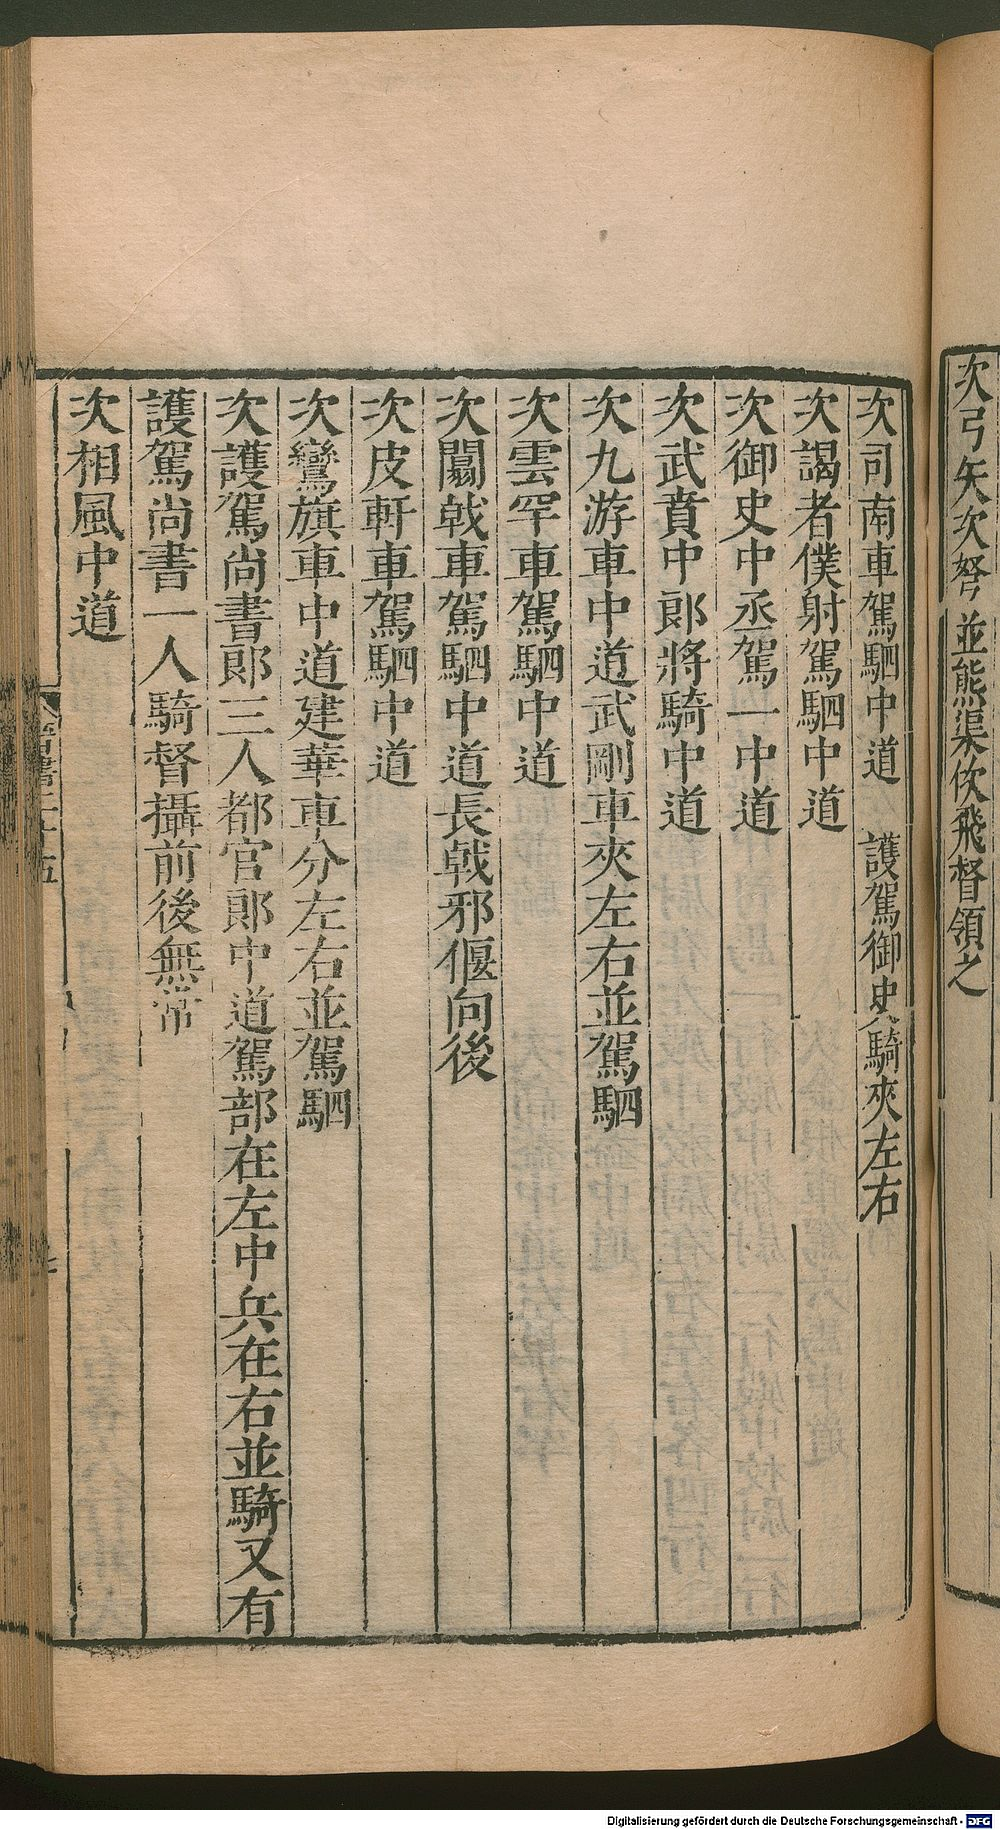 次弓矢次弩並熊渠佽飛督領之
次司南車駕駟中道　護駕御史騎夾左右
次謁者僕射駕駟中道
次御史中丞駕一中道
次武賁中郎將騎中道
次九游車中道武剛車夾左右並駕駟
次雲罕車駕駟中道
次闟戟車駕駟中道長戟邪偃向後
次皮軒車駕駟中道
次鸞旗車中道建華車分左右並駕駟
次護駕尚書郎三人都官郎中道駕部在左中兵在右並騎又有
護駕尚書一人騎督攝前後無常
次相風中道
晉書二十五
Digitalisierung gefördert durch die Deutsche Forschungsgemeinschaft - DFG